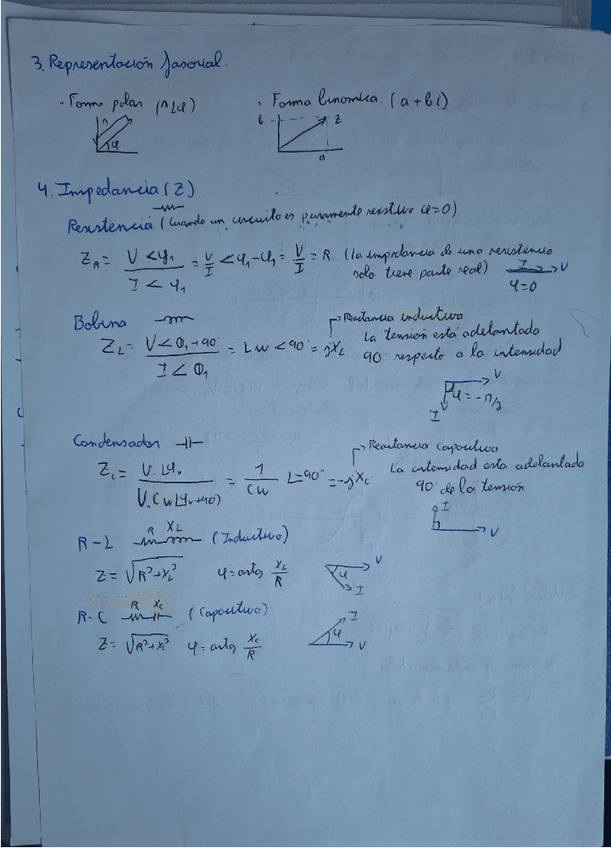 3. Representación fasorial.
· Forma polar (r∠φ)
· Forma binomica. (a+bi)
r
φ
b
z
a
4. Impedancia (Z)
Resistencia (Cuando un circuito es puramente resistivo φ=0)
Z_R = V<φ₁ / I<φ₁ = V/I < φ₁-φ₁ = V/I = R (La impedancia de una resistencia
solo tiene parte real)
I V
φ=0
Bobina
→ Reactancia inductiva
Z_L = V<Φ₁+90 / I<Φ₁ = Lw<90° = jX_L
La tensión está adelantado
90° respecto a la intensidad
V
φ=-π/2
I
Condensador
→ Reactancia capacitiva
Z_c = V·∠φᵥ / V·Cw∠φᵥ+90) = 1/Cw ∠-90° = -jX_c
La intensidad esta adelantado
90° de la tensión
I
V
R-L R X_L (Inductivo)
Z = √R²+X_L² φ=artg X_L/R
φ V
I
R-C R X_c (Capacitivo)
Z = √R²+X² φ=artg X_c/R
I
φ
V